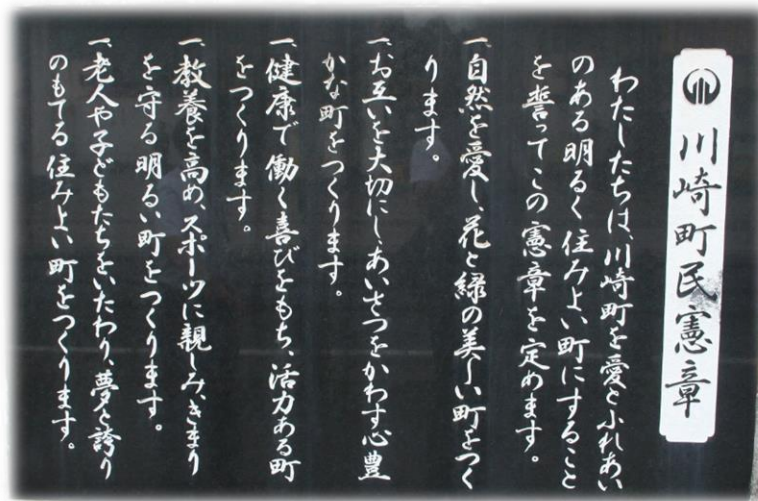 川崎町民憲章
わたしたちは、川崎町を愛とふれあい
のある明るく住みよい町にすること
を誓ってこの憲章を定めます。
一、自然を愛し、花と緑の美しい町をつく
ります。
一、お互いを大切にし、あいさつをかわす心豊
かな町をつくります。
一、健康で働く喜びをもち、活力ある町
をつくります。
一、教養を高め、スポーツに親しみ、きまり
を守る明るい町をつくります。
一、老人や子どもたちをいたわり、夢と誇り
のもてる住みよい町をつくります。